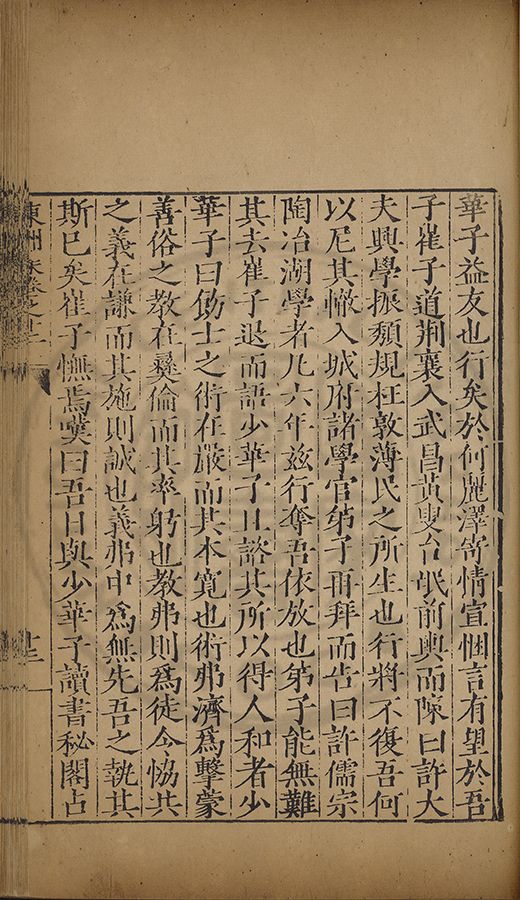 華子益友也行矣於何麗澤寄情宣悃言有望於吾
子崔子道荆襄入武昌黃叟台氓前輿而陳曰許大
夫興學振頽規枉敦薄民之所生也行將不復吾何
以尼其轍入城府諸學官弟子再拜而告曰許儒宗
陶冶湖學者凡六年兹行奪吾依放也弟子能無難
其去崔子退而語少華子且諮其所以得人和者少
華子曰飭士之術在嚴而其本寛也術弗濟爲擊蒙
善俗之教在彜倫而其率躬也教弗則爲徒令恊共
之義在謙而其施則誠也義弗中爲無先吾之執其
斯已矣崔子憮焉嘆曰吾日與少華子讀書秘閣占
東州 卷之二
廿三